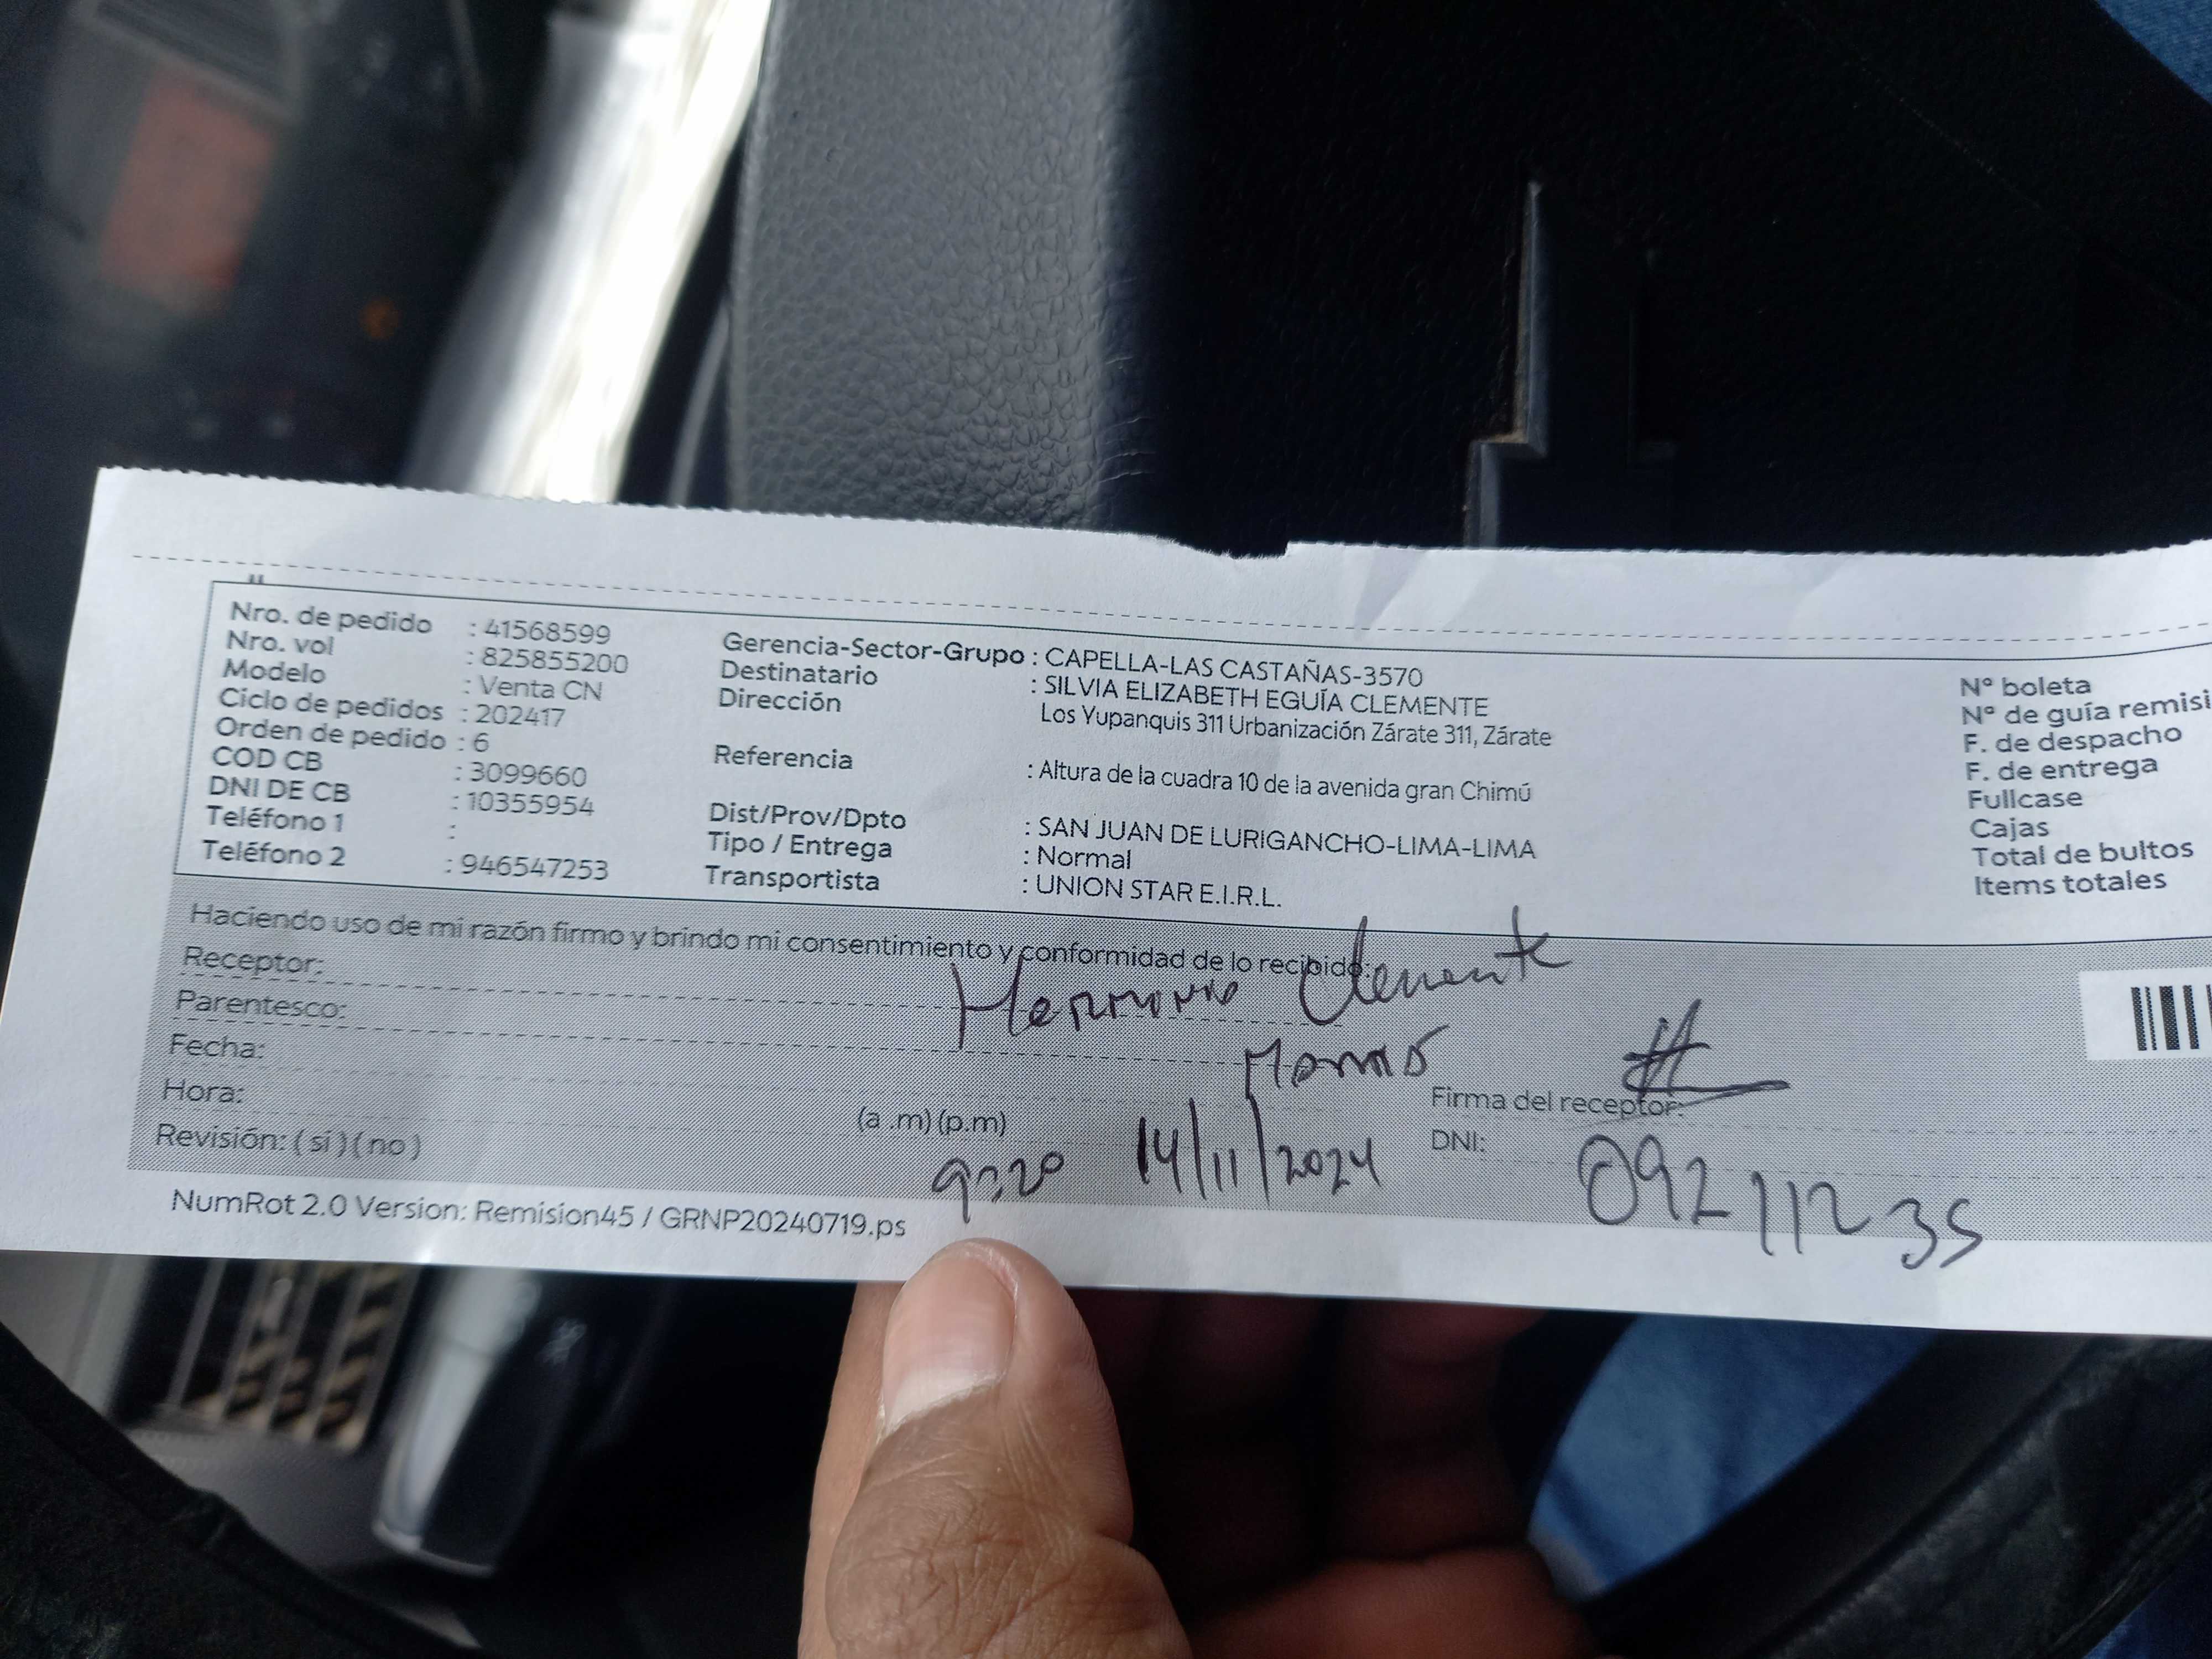 Nro. de pedido : 41568599
Nro. vol : 825855200
Modelo : Venta CN
Ciclo de pedidos : 202417
Orden de pedido : 6
COD CB : 3099660
DNI DE CB : 10355954
Teléfono 1 :
Teléfono 2 : 946547253
Gerencia-Sector-Grupo : CAPELLA-LAS CASTAÑAS-3570
Destinatario : SILVIA ELIZABETH EGUÍA CLEMENTE
Dirección Los Yupanquis 311 Urbanización Zárate 311, Zárate
Referencia : Altura de la cuadra 10 de la avenida gran Chimú
Dist/Prov/Dpto : SAN JUAN DE LURIGANCHO-LIMA-LIMA
Tipo / Entrega : Normal
Transportista : UNION STAR E.I.R.L.
N° boleta
N° de guía remisi
F. de despacho
F. de entrega
Fullcase
Cajas
Total de bultos
Items totales
Haciendo uso de mi razón firmo y brindo mi consentimiento y conformidad de lo recibido:
Receptor: Clemente
Parentesco:
Fecha: 14/11/2024
Hora: 9:20 (a .m) (p.m)
Revisión: ( sí ) ( no )
Firma del receptor:
DNI: 09211235
NumRot 2.0 Version: Remision45 / GRNP20240719.ps